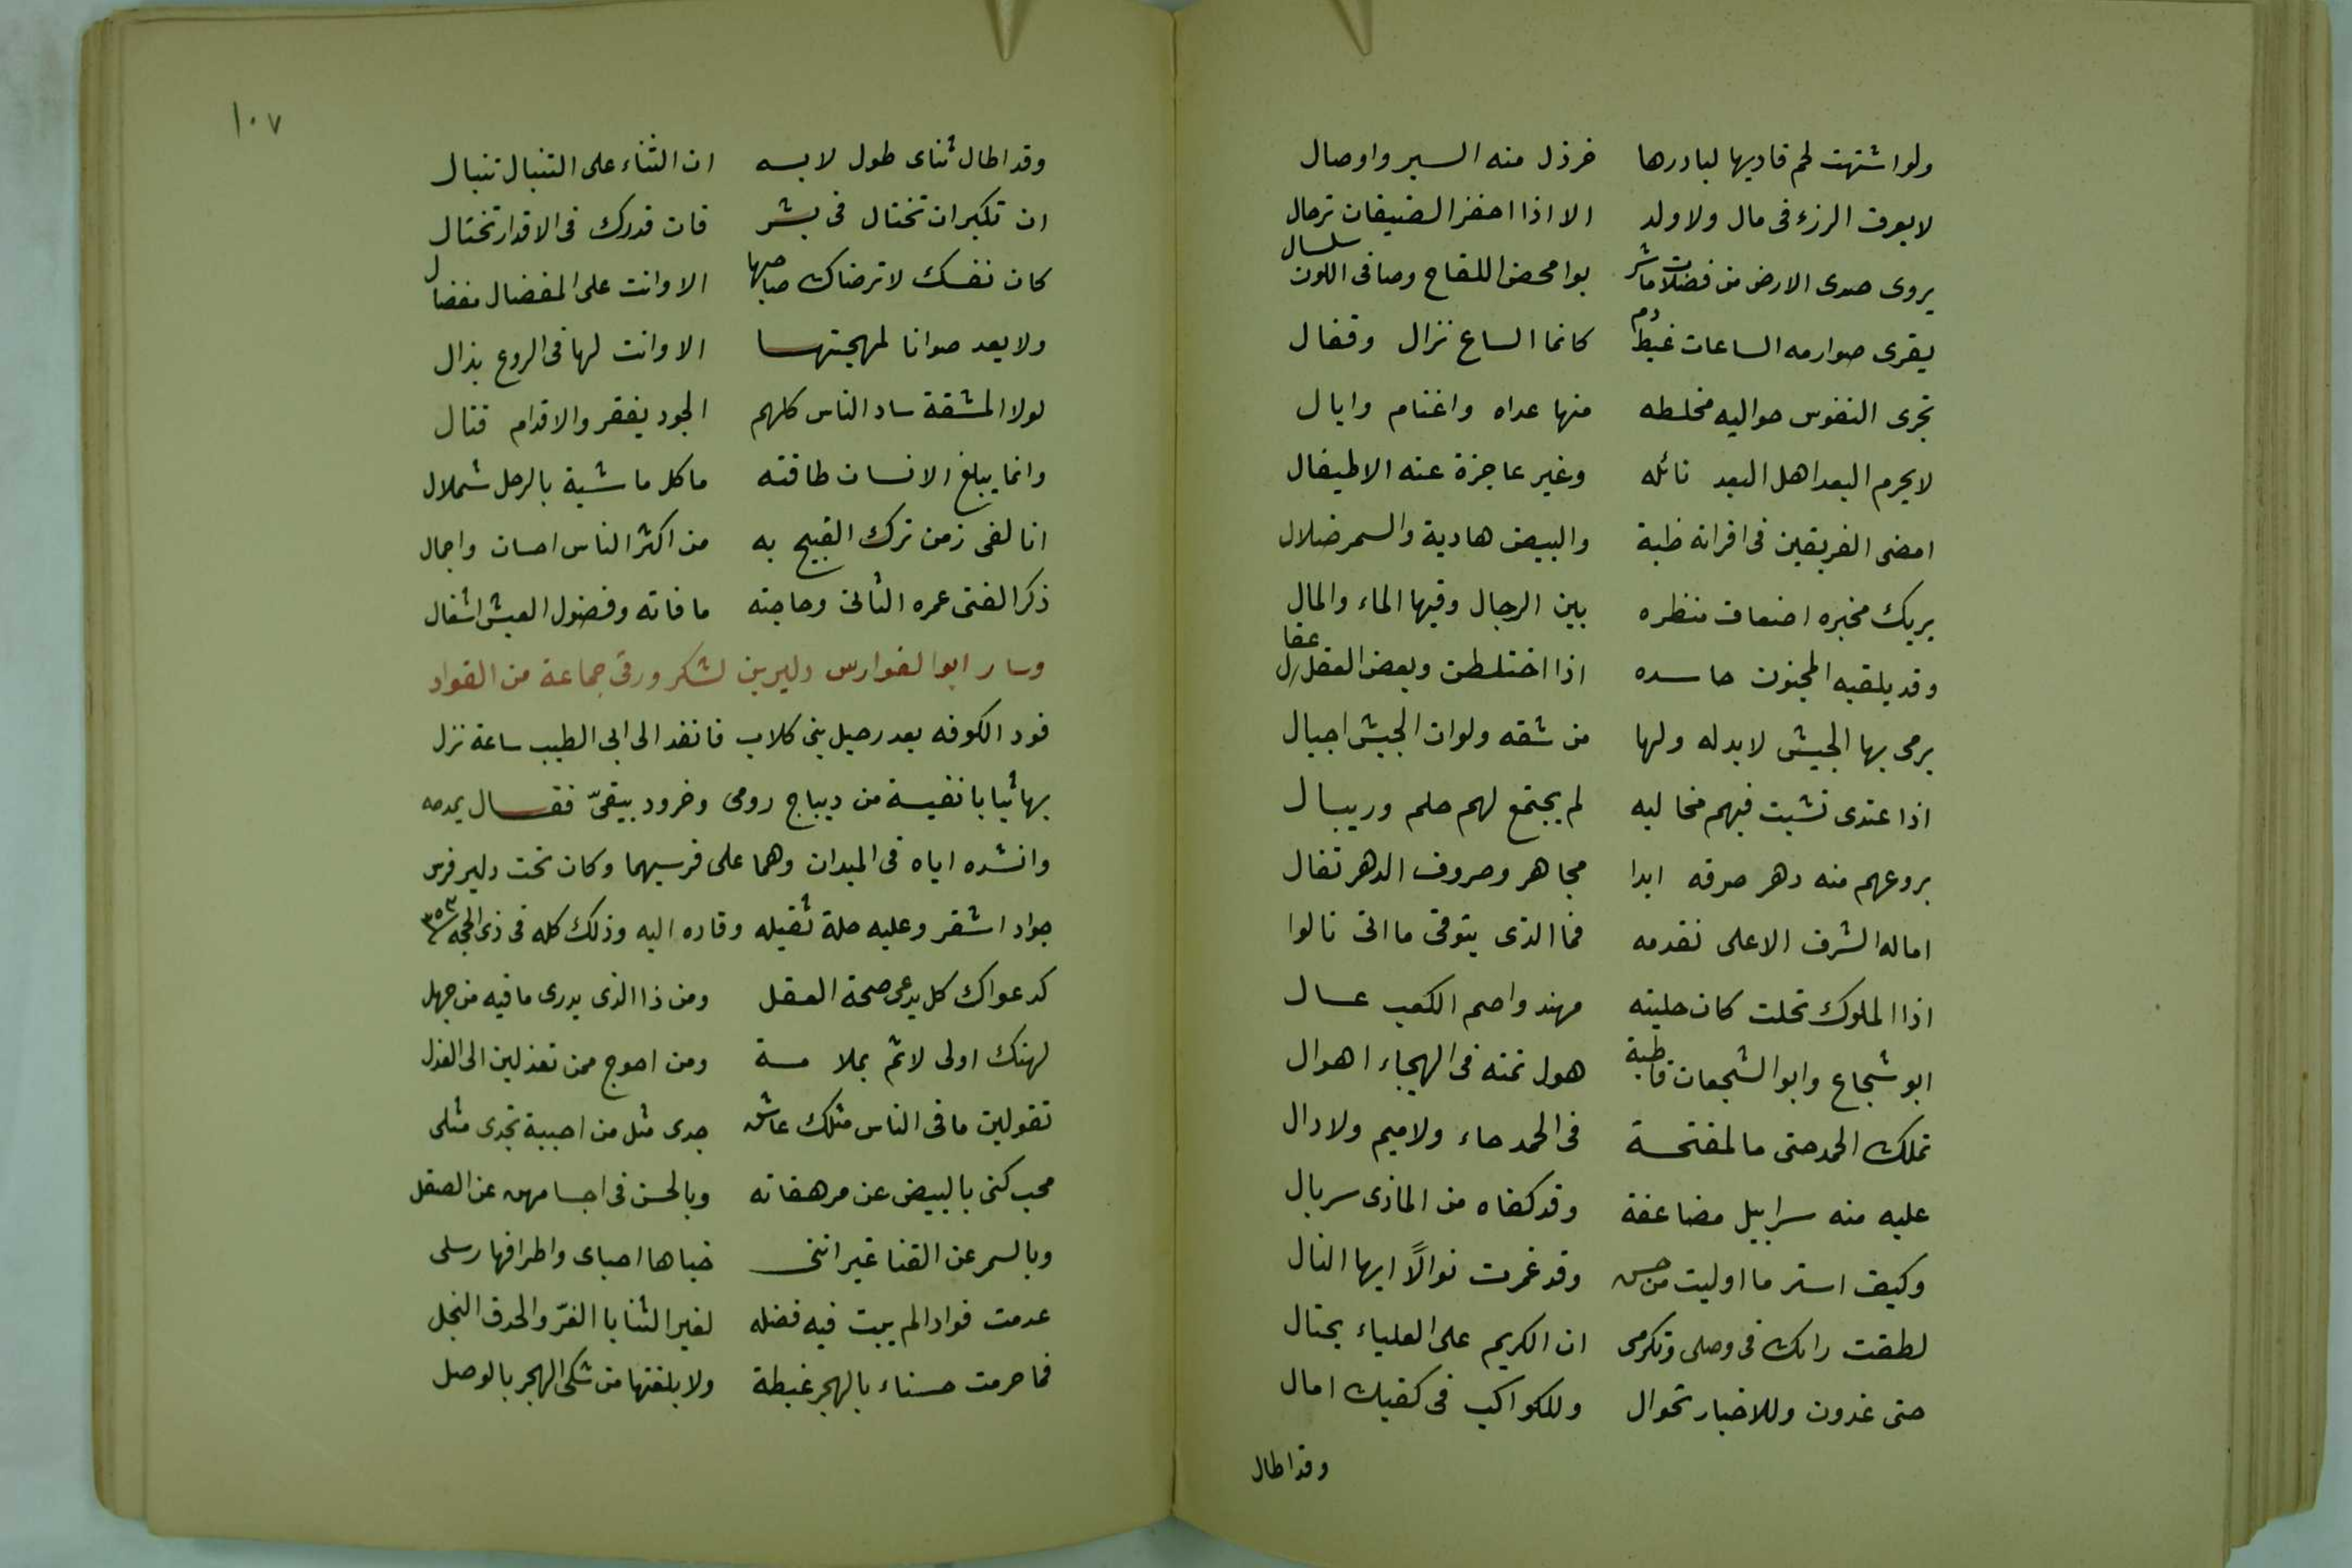 ولو اشتهت لحم قاديها لبادرها خرذل منه السير واوصال
لا يعرف الرزء فى مال ولا ولد الا اذا احفز الضيفان ترحال
يروى صدى الارض من فضلات ما شربوا محض اللقاح وصافى اللون سلسال
يقرى صوارمه الساعات غبط دم كانما الساع نزال وقفال
تجرى النفوس حواليه مخلطه منها عداه واغنام وابال
لا يحرم البعد اهل البعد نائله وغير عاجزة عنه الاطيفال
امضى الفريقين فى اقرانه ظبة والبيض هادية والسمر ضلال
يريك مخبره اضعاف منظره بين الرجال وفيها الماء والمال
وقد يلقبه المجنون حاسده اذا اختلطن وبعض العقل عقال
يرمى بها الجيش لا بد له ولها من شقه ولوان الجيش اجبال
اذا عتدى نشبت فيهم مخاليه لم يجتمع لهم حلم وريبال
يروعهم منه دهر صرفه ابدا مجاهر وصروف الدهر تغال
اماله الشرف الاعلى تقدمه فما الذى يتوقى ما اتى نالوا
اذا الملوك تحلت كان حليته مهند واصم الكعب عسال
ابو شجاع وابو الشجعان قاطبة هول نمته فى الهيجاء اهوال
تملك الحمد حتى ما لمفتحسة فى الحمد حاء ولا ميم ولا دال
عليه منه سرابيل مضاعفة وقد كفاه من الماذى سربال
وكيف استر ما اوليت من حسن وقد غمرت نوالًا ايها النال
لطفت رايك فى وصلى وتكرمى ان الكريم على العلياء يحتال
حتى غدون وللاخبار تحوال وللكواكب فى كفيك امال
وقد اطال
١٠٧
وقد اطال ثناى طول لابسه ان الثناء على التنبال تنبال
ان تكبران تختال فى بشر فان قدرك فى الاقدار تختال
كان نفسك لا ترضاك صاحبها الا وانت على المفضال مفضال
ولا يعد صوانا لمهجتهسا الا وانت لها فى الروع بذال
لولا المشقة ساد الناس كلهم الجود يفقر والاقدام قتال
وانما يبلغ الانسان طاقته ما كل ماشية بالرحل شملال
انا لفى زمن ترك القبيح به من اكثر الناس احسان واجمال
ذكر الفتى عمره الثانى وحاجته ما فاته وفضول العيش اشغال
وسار ابو الفوارس دلير بن لشكر ورق جماعة من القواد
فود الكوفه بعد رحيل بنى كلاب فانفد الى ابى الطيب ساعة نزل
بها ثيابا نفيسة من ديباج رومى وخرود بيقىّ فقسال يمدحه
وانشده اياه فى الميدان وهما على فرسيهما وكان تحت دلير فرس
جواد اشقر وعليه حلة ثقيله وقاده اليه وذلك كله فى ذى الحجه ٣٥٣
كدعواك كل يدعى صحة العقل ومن ذا الذى يدرى ما فيه من جهل
لهنك اولى لائم بملا مسة ومن احوج ممن تعذلين الى العذل
تقولين ما فى الناس مثلك عاشق جدى مثل من احببة تجدى مثلى
محب كنى بالبيض عن مرهفاته وبالحسن فى اجسامهن عن الصقل
وبالسمر عن القنا غير اننى خباها احباى واطرافها رسلى
عدمت فوادا لم يبت فيه فضله لغير الثنايا الغرّ والحدق النجل
فما حرمت حسناء بالهجر غبطة ولا بلغتها من شكى الهجر بالوصل